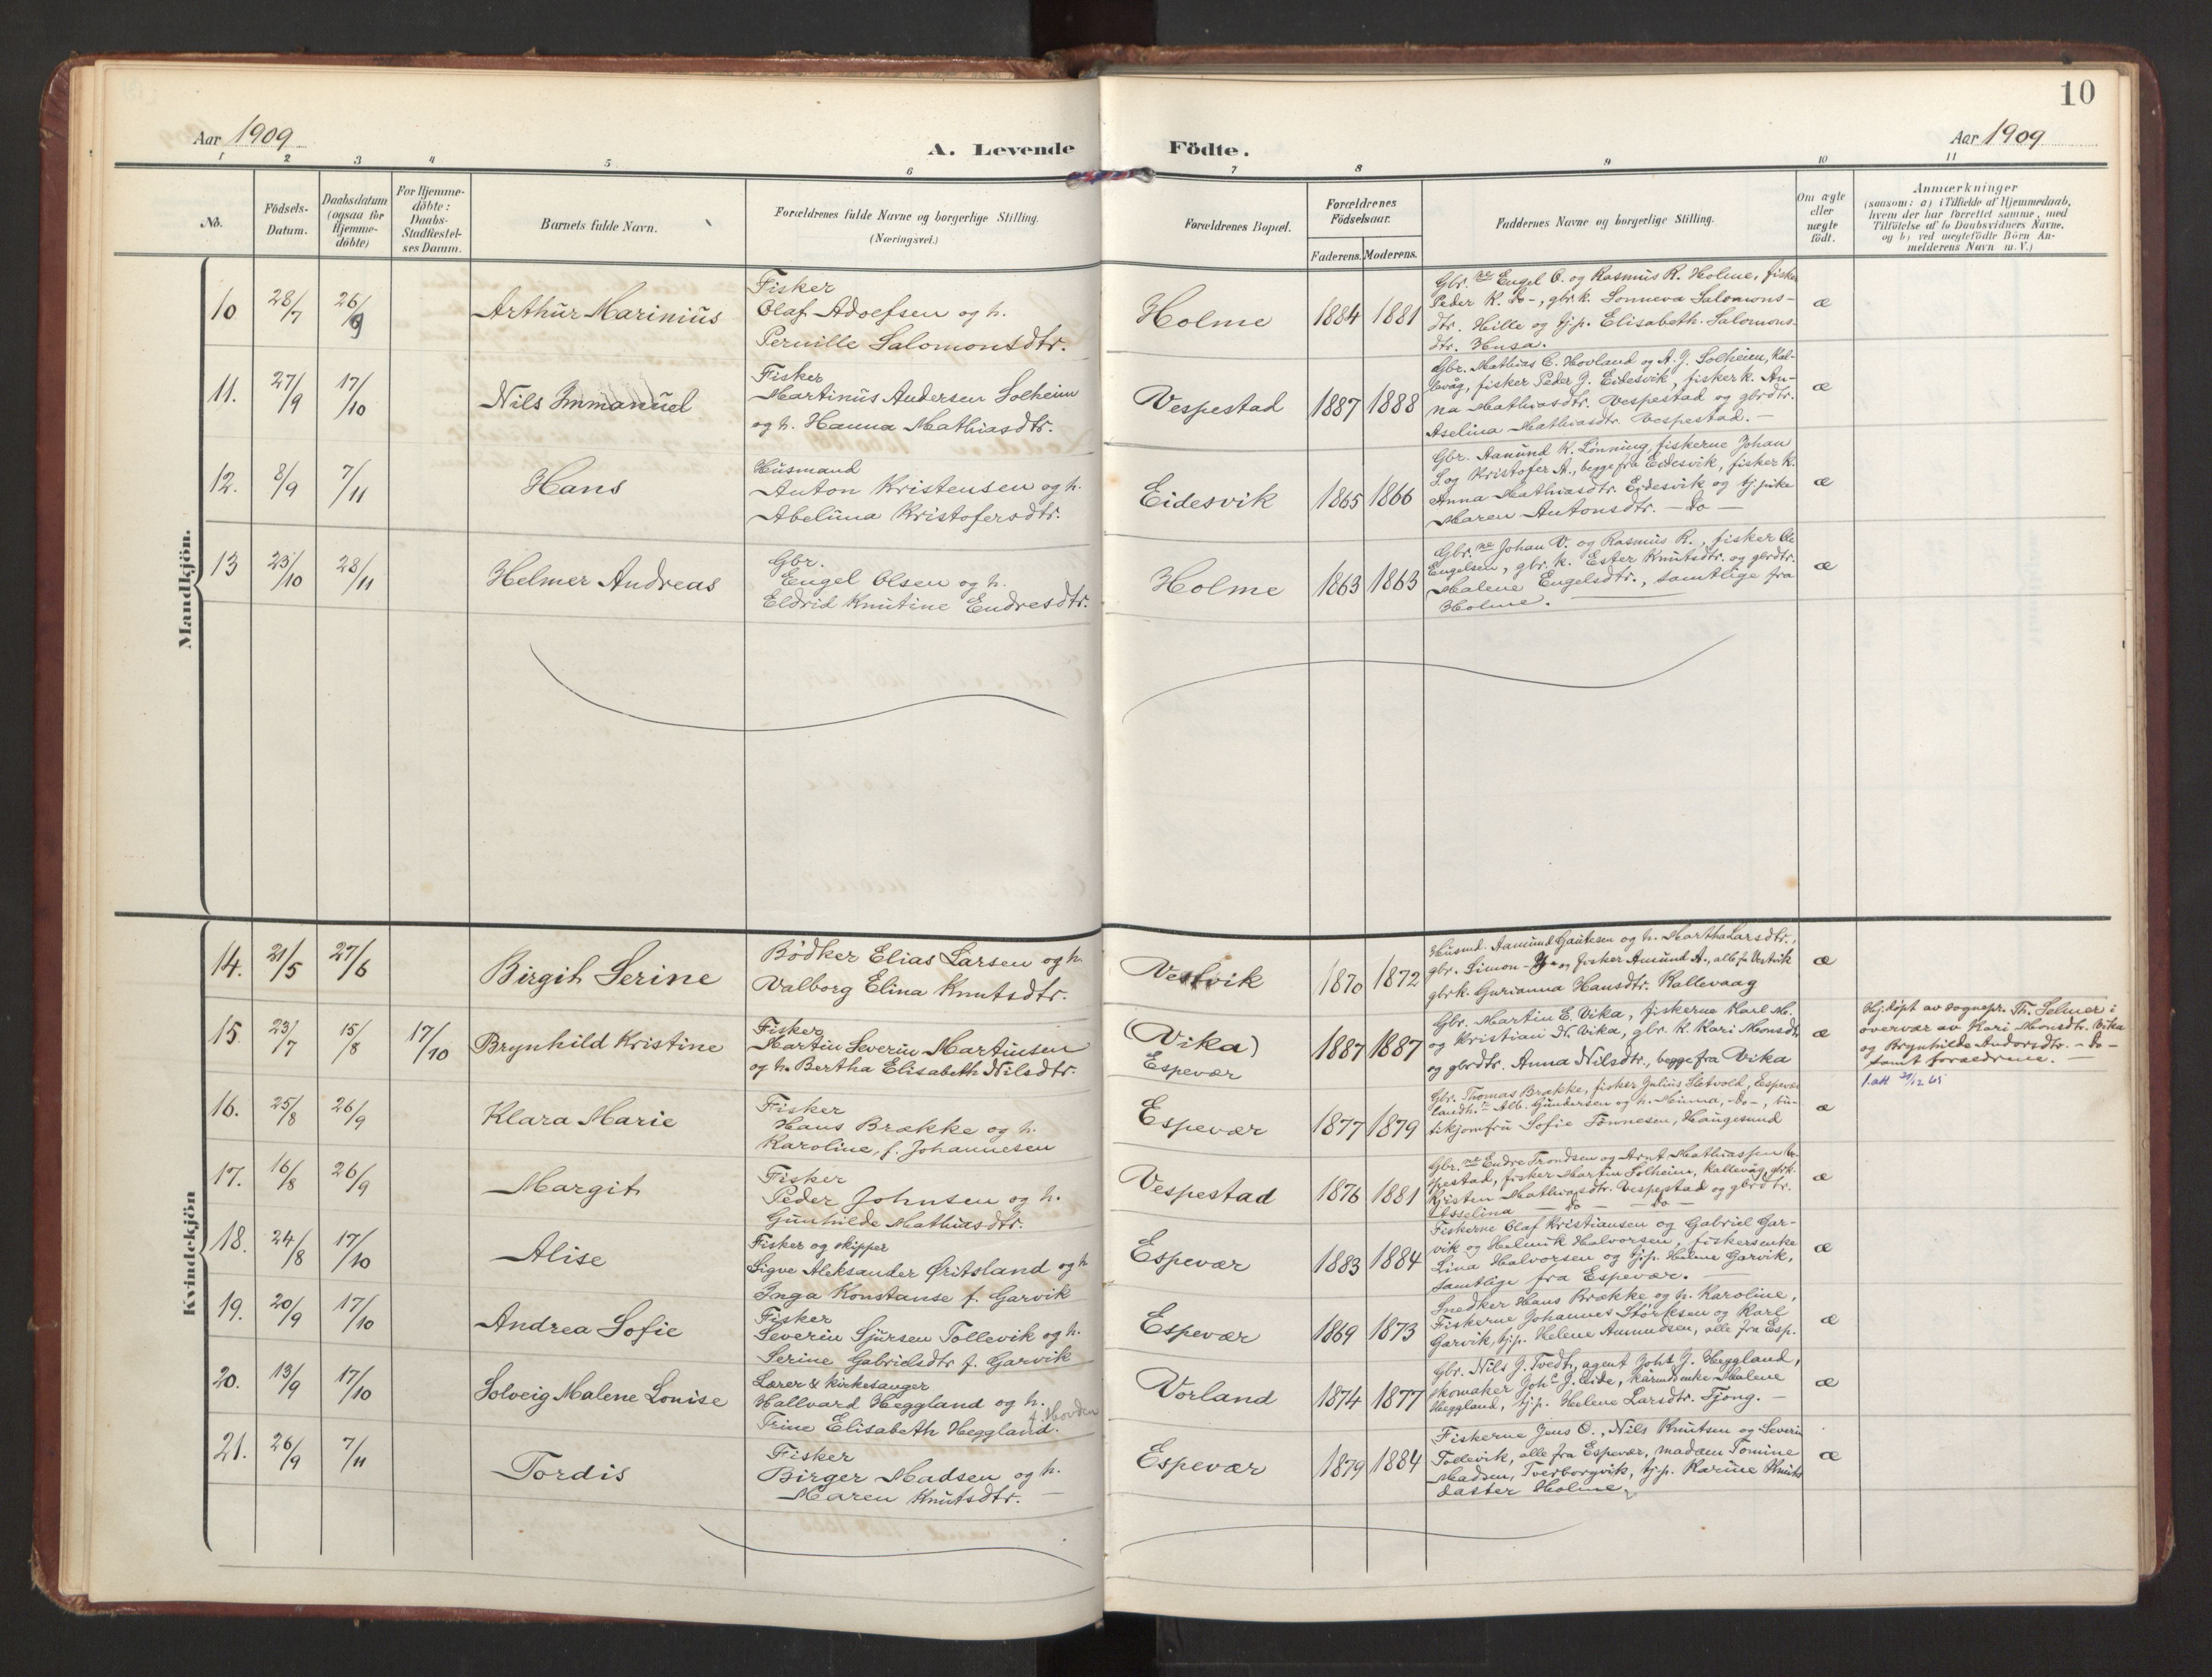 10
Aar 1909
A. Levende Födte.
Aar 1909
1 2 3 4 5 6 7 8 9 10 11
No.
Födsels-
Datum.
Daabsdatum
(ogsaa for
Hjemme-
döbte)
For Hjemme-
döbte:
Daabs-
Stadfæstel-
ses Datum.
Barnets fulde Navn.
Forældrenes fulde Navne og borgerlige Stilling.
(Næringsvei.)
Forældrenes Bopæl.
Forældrenes
Födselsaar.
Faderens. Moderens.
Faddernes Navne og borgerlige Stilling.
Om ægte
eller
uægte
födt.
Anmærkninger
(saasom: a) i Tilfælde af Hjemmedaab,
hvem der har forrettet samme, med
Tilföielse af to Daabsvidners Navne,
og b) ved uægtefödte Börn An-
melderens Navn m. V.)
Mandkjön.
10 28/7 26/9 Arthur Marinius
Fisker
Olaf Adolfsen og h.
Pernille Salomonsdtr.
Holme 1884 1881
Gbr.ne Engel O. og Rasmus R. Holme, fisker
Peder R. do-, gbr.k. Sonneva Salomons-
dtr. Hille og tj.p. Elisabeth Salomons-
dtr. Husa.
æ
11. 27/9 17/10 Nils Immanuel
Fisker
Martinus Andersen Solheim
og h. Hanna Mathiasdtr.
Vespestad 1887 1888
Gbr. Mathias C. Hovland og A. J. Solheim, Kal-
levåg, fisker Peder J. Eidesvik, fisker k. An-
na Mathiasdtr. Vespestad og gbrdtr.
Aselina Mathiasdtr. Vespestad. —
æ
12. 8/9 7/11 Hans
Husmand
Anton Kristensen og h.
Abelina Kristofersdtr.
Eidesvik 1865 1866
Gbr. Aamund K. Lönning, fiskerne Johan
L. og Kristofer A., begge fra Eidesvik, fisker k.
Anna Mathiasdtr. Eidesvik og tj.pike
Maren Antonsdtr. — do —
æ
13 23/10 28/11 Helmer Andreas
Gbr.
Engel Olsen og h.
Eldrid Knutine Endresdtr.
Holme 1863 1863
Gbr.ne Johan V. og Rasmus R., fisker Ole
Engelsen, gbr. k. Ester Knutsdtr. og gbrdtr.
Malene Engelsdtr., samtlige fra
Holme.
æ
Kvindekjön
14. 21/5 27/6 Birgit Serine
Bödker Elias Larsen og h.
Valborg Elina Knutsdtr.
Vestvik 1870 1872
Husmd. Aamund Gautesen og h. Martha Larsdtr.,
gbr. Simon fisker Amund A., alle fr Vestvik
gbrk. Gurianna Hansdtr. Kallevaag
æ
15. 23/7 15/8 17/10 Brynhild Kristine
Fisker
Martin Severin Martinsen
og h. Bertha Elisabeth Nilsdtr.
(Vika)
Espevær 1887 1887
Gbr. Martin E. Vika, fiskerne Karl M.
og Kristian N. Vika, gbr. k. Kari Monsdtr.
og gbrdtr. Anna Nilsdtr., begge fra Vika
æ
Hj.døpt av sognepr. Th. Selmer i
overvær av Kari Monsdtr. Vika
og Brynhilde Andorsdtr. - do -
samt forældrene. —
f.att 21/12 65
16. 25/8 26/9 Klara Marie
Fisker
Hans Brække og h.
Karoline, f. Johannesen
Espevær 1877 1879
Gbr. Thomas Brække, fisker Julius Sletvold, Espevær
landh. Alb. Gundersen og h. Minna, - do -, bu-
tikjomfru Sofie Tönnesen, Haugesund
æ
17. 16/8 26/9 Margit
Fisker
Peder Johnsen og h.
Gunhilde Mathiasdtr.
Vespestad 1876 1881
Gbr.ne Endre Trondsen og Arnt Mathiassen Ve-
spestad, fisker Martin Solheim, Kallevåg, gbrk.
Kristen Mathiasdtr. Vespestad og gbrdtr.
Asselina — do — — do —
æ
18. 24/8 17/10 Alise
Fisker og skipper
Sigve Aleksander Øritsland og h
Inga Konstanse f. Garvik
Espevær 1883 1884
Fiskerne Olaf Kristiansen og Gabriel Gar-
vik og Helmik Halvorsen, fiskersenke
Lina Halvorsen og tj.p. Helene Garvik,
samtlige fra Espevær. —
æ
19. 20/9 17/10 Andrea Sofie
Fisker
Severin Sjursen Tollevik og h.
Serine Gabrielsdtr f. Garvik
Espevær 1869 1873
Snedker Hans Brække og h. Karoline,
Fiskerne Johannes Störksen og Karl
Garvik, tj.p. Helene Amundsen, alle fra Esp.
æ
20. 13/9 17/10 Solveig Malene Louise
Lærer & kirkesanger
Hallvard Heggland og h.
Trine Elisabeth Heggland. f. Hovden
Vorland 1874 1877
Gbr. Nils J. Tvedt, agent Johs J. Heggland,
skomaker Johs J. Eide, kårmdsenke Malene
Heggland, tj.p. Helene Larsdtr. Tjong. —
æ
21. 26/9 7/11 Tordis
Fisker
Birger Madsen og h.
Maren Knutsdtr. —
Espevær 1879 1884
Fiskerne Jens O., Nils Knutsen og Severin
Tollevik, alle fra Espevær, madam Tomine
Madsen, Tverborgvik, tj.p. Karine Knuts
datter Holme.
æ